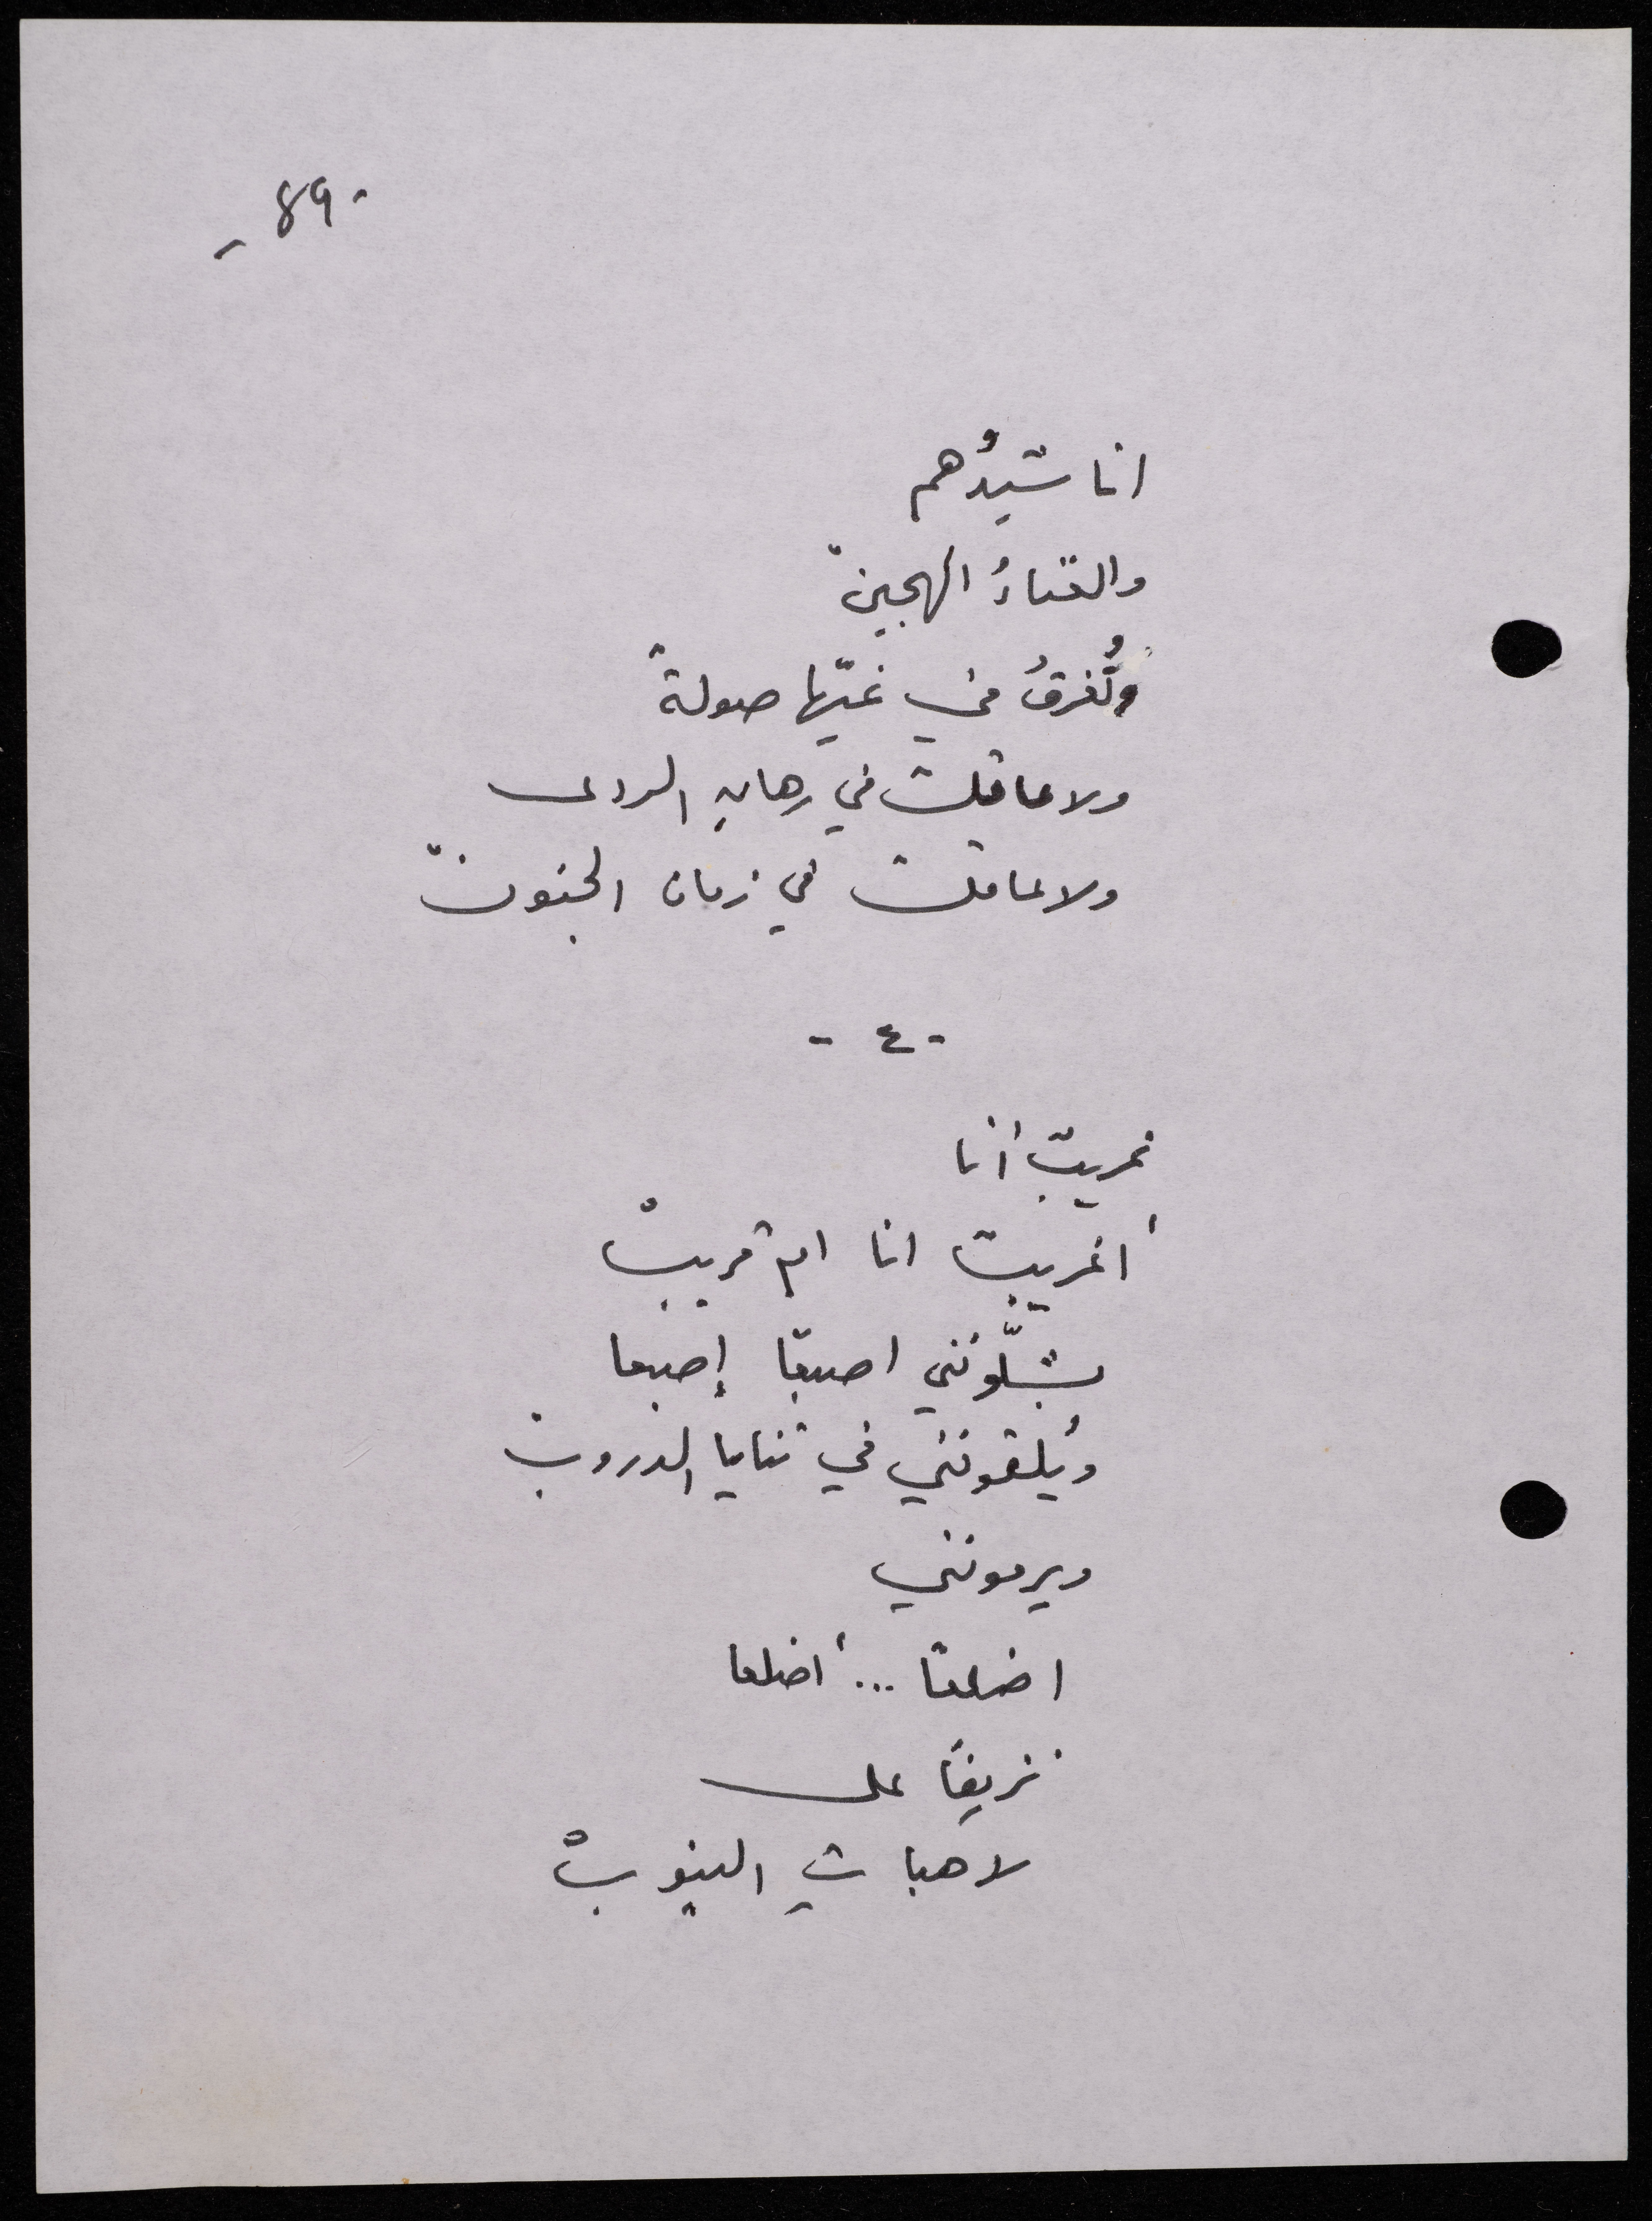 - 89 -
اناشيدُهم
والغناءُ الهجينْ
وتُغرقُ في غيّها صولةً
ولا عاقلٌ في رهانِ الردى
ولا عاقلٌ في زمان الجنونْ
- ٤ -
غريبٌ أنا
أغريبٌ انا ام قريبْ
يشلّونني اصبعًا إصبعا
ويُلقونني في ثنايا الدروبْ
ويرمونني
اضلعًا ... أضلعا
نزيفًا على
لاهباتِ النيوبْ